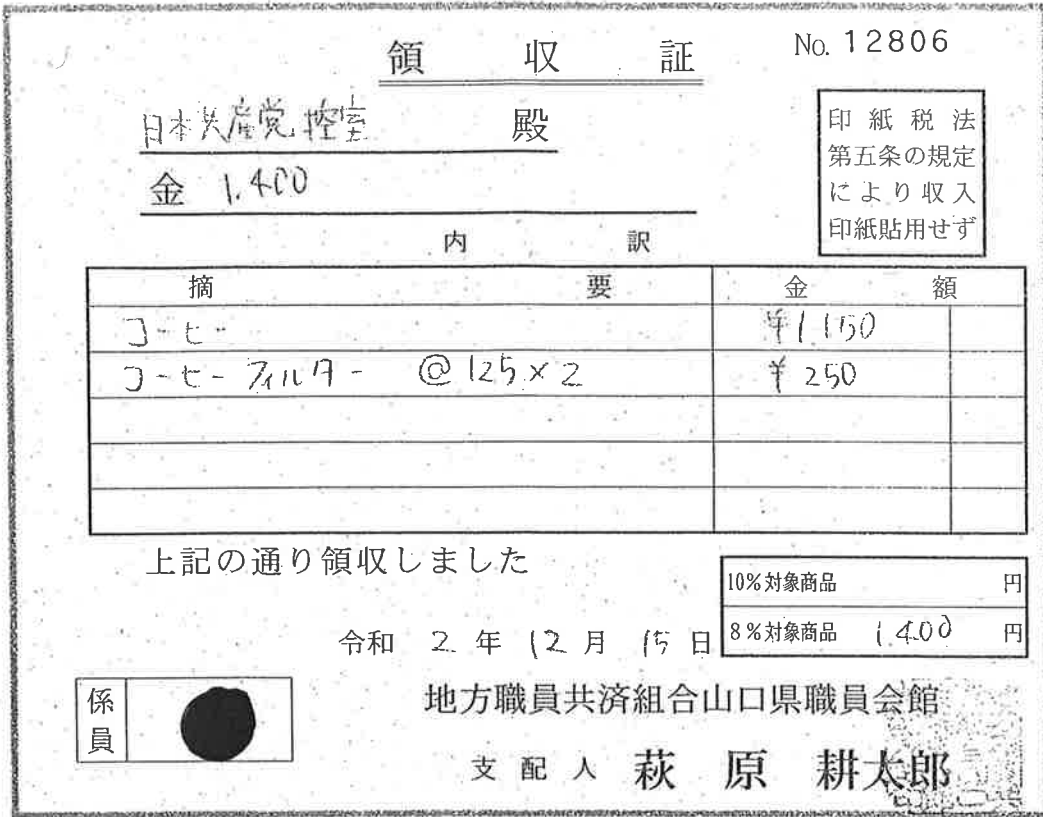 領収証
No. 12806
日本共産党控室 殿
印紙税法
第五条の規定
により収入
印紙貼用せず
金 1,400
内訳
摘要 金額
コーヒー ¥1,150
コーヒーフィルター @125×2 ¥250
上記の通り領収しました
10%対象商品 円
8%対象商品 1,400 円
令和 2年 12月 15日
係員
地方職員共済組合山口県職員会館
支配人 萩原耕太郎